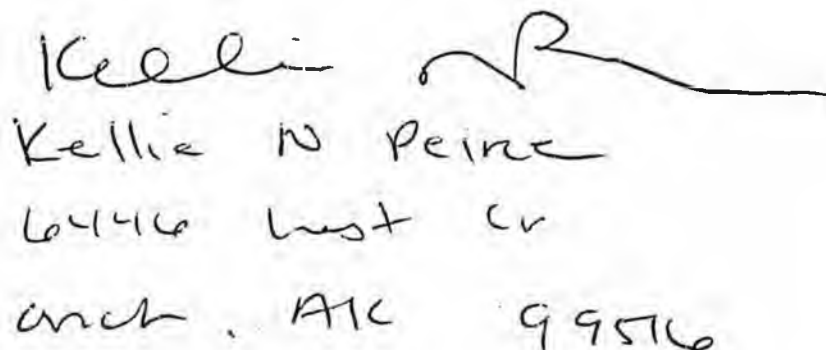 Kelli
Kellie N Peirce
6446 Cr
anch. AK 99516